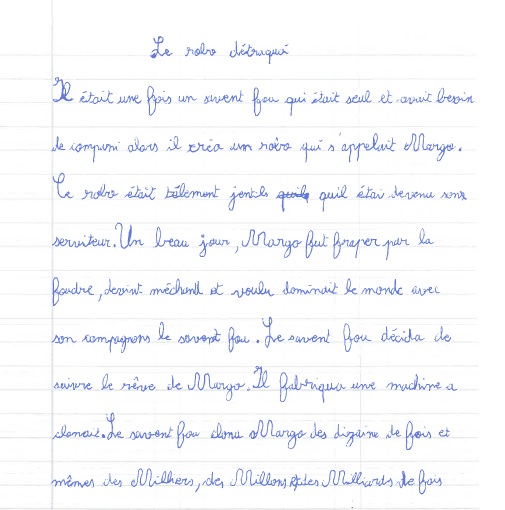 Le robo détraqué
Il était une fois un savent fou qui était seul et avait besoin
de compani alors il créa un robo qui s'appelait Margo.
Ce robo était télement jentils quil étai devenu sons
serviteur. Un beau jour, Margo fut fraper par la
foudre, devint méchant et voulu dominait le monde avec
son compagnons le savent fou. Le savent fou décida de
suivre le rêve de Margo. Il fabriqua une machine a
clonait. Le savent fou clona Margo des dizaine de fois et
mêmes des Milliers, des Millons et des Milliards de fois